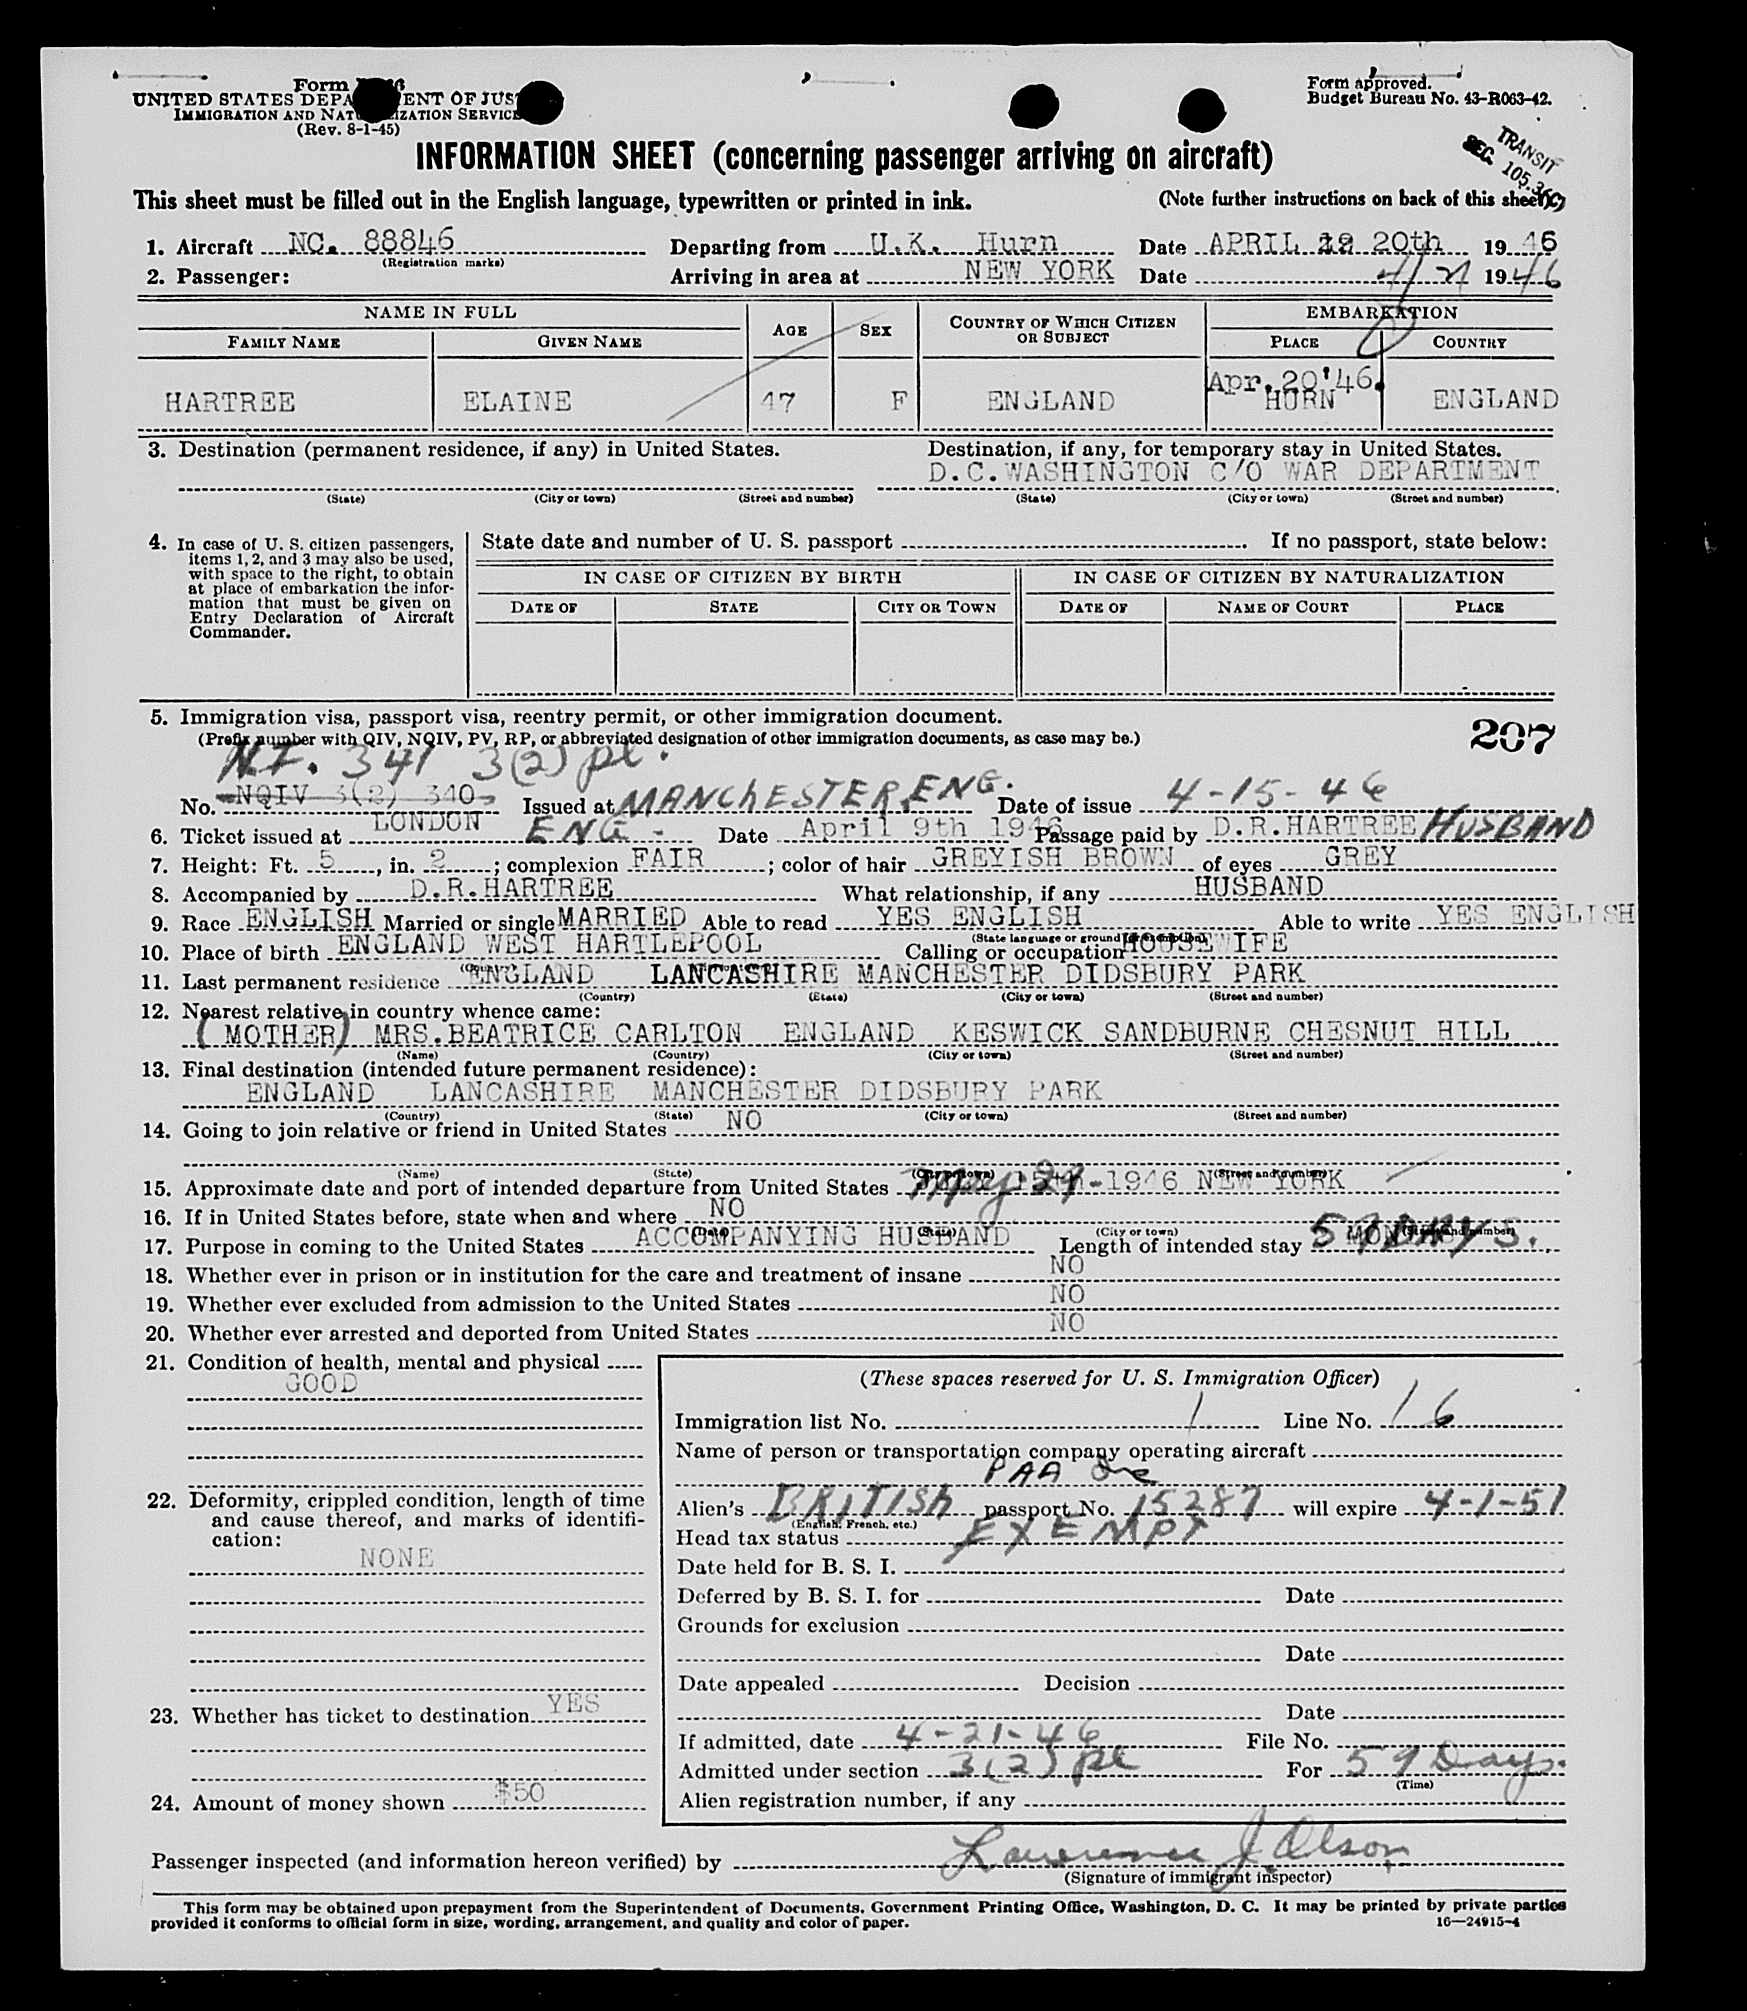 Form
UNITED STATES DEPA ENT OF JUS
IMMIGRATION AND NAT IZATION SERVICE
(Rev. 8-1-45)
Form approved.
Budget Bureau No. 43-R063-42.
TRANSIT
SEC. 105.3
INFORMATION SHEET (concerning passenger arriving on aircraft)
This sheet must be filled out in the English language, typewritten or printed in ink. (Note further instructions on back of this sheet)
1. Aircraft NC. 88846 Departing from U.K. Hurn Date APRIL 20th 19 46
(Registration marks)
2. Passenger: Arriving in area at NEW YORK Date 4/21 1946
NAME IN FULL AGE SEX COUNTRY OF WHICH CITIZEN OR SUBJECT EMBARKATION
FAMILY NAME GIVEN NAME PLACE COUNTRY
Apr. 20'46.
HARTREE ELAINE 47 F ENGLAND HURN ENGLAND
3. Destination (permanent residence, if any) in United States. Destination, if any, for temporary stay in United States.
D.C. WASHINGTON C/O WAR DEPARTMENT
(State) (City or town) (Street and number) (State) (City or town) (Street and number)
4. In case of U. S. citizen passengers, items 1, 2, and 3 may also be used, with space to the right, to obtain at place of embarkation the information that must be given on Entry Declaration of Aircraft Commander.
State date and number of U. S. passport If no passport, state below:
IN CASE OF CITIZEN BY BIRTH IN CASE OF CITIZEN BY NATURALIZATION
DATE OF STATE CITY OR TOWN DATE OF NAME OF COURT PLACE
5. Immigration visa, passport visa, reentry permit, or other immigration document. 207
(Prefix number with QIV, NQIV, PV, RP, or abbreviated designation of other immigration documents, as case may be.)
N.I. 341 3(2) pl.
No. NQIV 3(2) 340 Issued at MANCHESTER, ENG. Date of issue 4-15-46
6. Ticket issued at LONDON ENG. Date April 9th 1946 Passage paid by D.R.HARTREE HUSBAND
7. Height: Ft. 5, in. 2; complexion FAIR; color of hair GREYISH BROWN of eyes GREY
8. Accompanied by D.R.HARTREE What relationship, if any HUSBAND
9. Race ENGLISH Married or single MARRIED Able to read YES ENGLISH Able to write YES ENGLISH
(State language or ground for exemption)
10. Place of birth ENGLAND WEST HARTLEPOOL Calling or occupation HOUSEWIFE
11. Last permanent residence ENGLAND LANCASHIRE MANCHESTER DIDSBURY PARK
(Country) (State) (City or town) (Street and number)
12. Nearest relative in country whence came:
(MOTHER) MRS.BEATRICE CARLTON ENGLAND KESWICK SANDBURNE CHESNUT HILL
(Name) (Country) (City or town) (Street and number)
13. Final destination (intended future permanent residence):
ENGLAND LANCASHIRE MANCHESTER DIDSBURY PARK
(Country) (State) (City or town) (Street and number)
14. Going to join relative or friend in United States NO
(Name) (State) (City or town) (Street and number)
15. Approximate date and port of intended departure from United States May 29-1946 NEW YORK
16. If in United States before, state when and where NO
(Date) (State) (City or town) (Street and number)
17. Purpose in coming to the United States ACCOMPANYING HUSBAND Length of intended stay 59 DAYS.
18. Whether ever in prison or in institution for the care and treatment of insane NO
19. Whether ever excluded from admission to the United States NO
20. Whether ever arrested and deported from United States NO
21. Condition of health, mental and physical
GOOD
22. Deformity, crippled condition, length of time and cause thereof, and marks of identification:
NONE
23. Whether has ticket to destination YES
24. Amount of money shown $50
(These spaces reserved for U. S. Immigration Officer)
Immigration list No. 1 Line No. 16
Name of person or transportation company operating aircraft
PAA Inc
Alien's BRITISH passport No. 15287 will expire 4-1-51
(English, French, etc.)
Head tax status EXEMPT
Date held for B. S. I.
Deferred by B. S. I. for Date
Grounds for exclusion
Date
Date appealed Decision
Date
If admitted, date 4-21-46 File No.
Admitted under section 3(2) pl For 59 Days.
(Time)
Alien registration number, if any
Passenger inspected (and information hereon verified) by Lawrence J. Olson
(Signature of immigrant inspector)
This form may be obtained upon prepayment from the Superintendent of Documents, Government Printing Office, Washington, D. C. It may be printed by private parties
provided it conforms to official form in size, wording, arrangement, and quality and color of paper. 16—24915-4